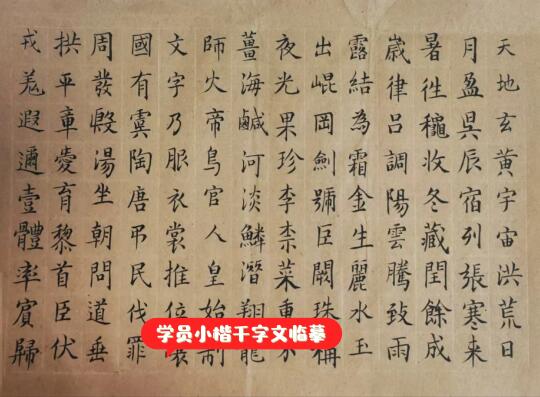 天地玄黃宇宙洪荒日
月盈昃辰宿列張寒来
暑往穐收冬藏閏餘成
歲律呂調陽雲騰致雨
露結為霜金生麗水玉
出崐岡劍號巨闕珠稱
夜光果珍李柰菜重芥
薑海鹹河淡鱗潛翔龍
師火帝鳥官人皇始制
文字乃服衣裳推位讓
國有虞陶唐吊民伐罪
周發殷湯坐朝問道垂
拱平章愛育黎首臣伏
戎羌遐邇壹體率賓歸
学员小楷千字文临摹